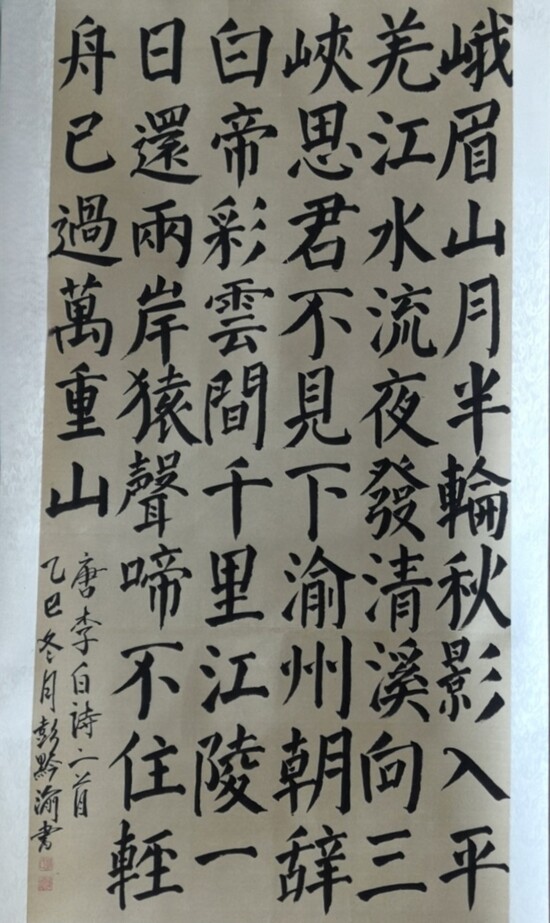 峨眉山月半輪秋影入平
羌江水流夜發清溪向三
峽思君不見下渝州朝辭
白帝彩雲間千里江陵一
日還兩岸猿聲啼不住輕
舟已過萬重山
唐李白詩二首
乙巳冬月彭黔渝書